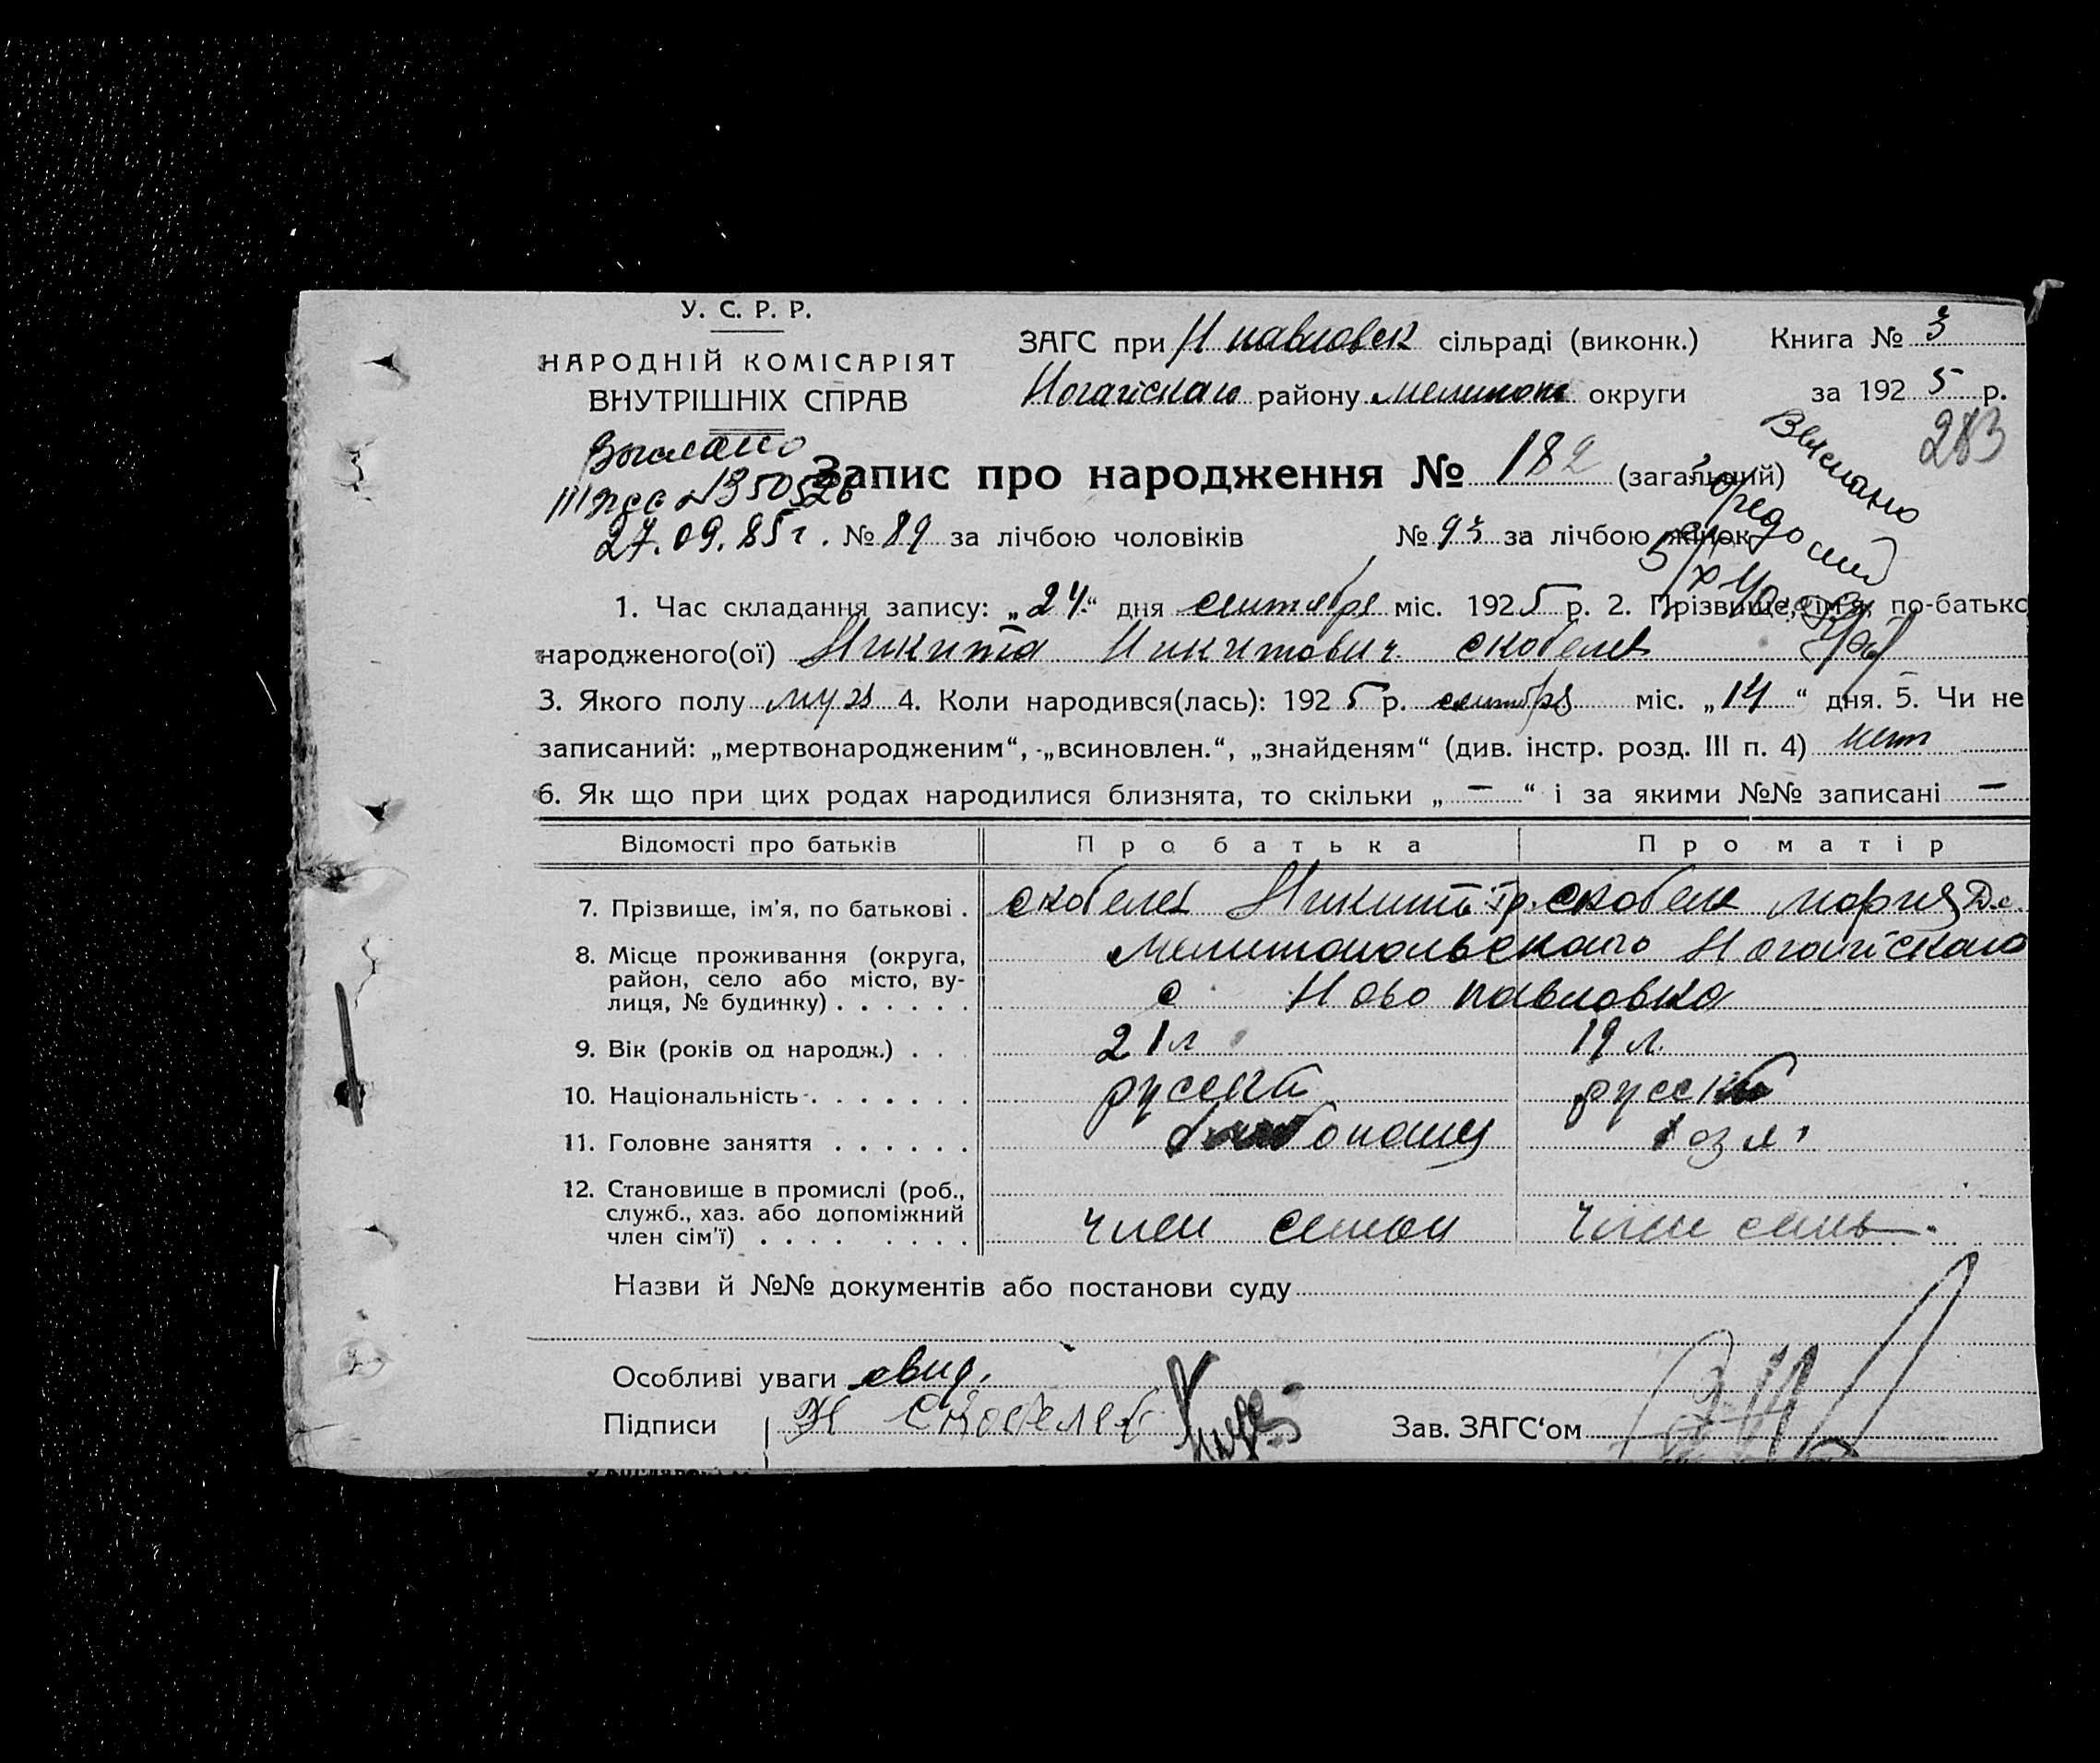 У. С. Р. Р.
НАРОДНІЙ КОМІСАРІЯТ
ВНУТРІШНІХ СПРАВ
ЗАГС при Н павловск сільраді (виконк.) Книга № 3
Ногайскаго району мелитопо округи за 1925 р.
283
Выслано
27.09.85 г.
Выслано
Запис про народження № 182 (загальний)
№ 89 за лічбою чоловіків № 93 за лічбою жінок
1. Час складання запису: „24“ дня сентября міс. 1925 р. 2. Прізвище, ім'я, по-батько
народженого(ої) Никита Никитович скобелев
3. Якого полу муж 4. Коли народився(лась): 1925 р. сентября міс. „14“ дня. 5. Чи не
записаний: „мертвонародженим“, „всиновлен.“, „знайденям“ (див. інстр. розд. III п. 4) нет
6. Як що при цих родах народилися близнята, то скільки „ — “ і за якими №№ записані —
Відомості про батьків Про батька Про матір
7. Прізвище, ім'я, по батькові . скобелев Никита гр. скобеле мария Д.с.
8. Місце проживання (округа, мелитопольскаго Ногайскаго
район, село або місто, ву-
лиця, № будинку) . . . . . . с Ново павловка
9. Вік (років од народж.) . . . 21 л 19 л.
10. Національність . . . . . . . русский русск
11. Головне заняття . . . . . .
12. Становище в промислі (роб.,
служб., хаз. або допоміжний
член сім'ї) . . . . . . . . член семьи член семь
Назви й №№ документів або постанови суду
Особливі уваги свид.
Підписи Н Скобелев
Зав. ЗАГС‘ом